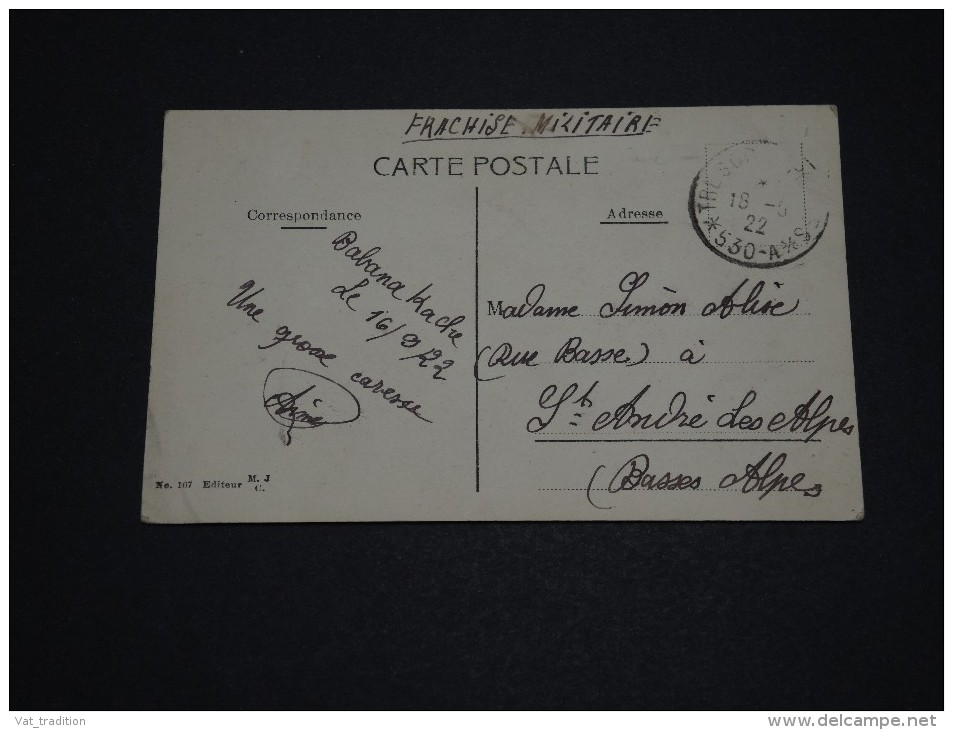 FRACHISE MILITAIRE
CARTE POSTALE
Correspondance
Adresse
18 - 22
*530-A*
Babana Kache
Le 16/9/22
Une grosse caresse
Madame Simon Alise
(Rue Basse) à
St André Les Alpes
(Basses Alpes
No. 107 Editeur M. J C.
Vat_tradition
www.delcampe.net